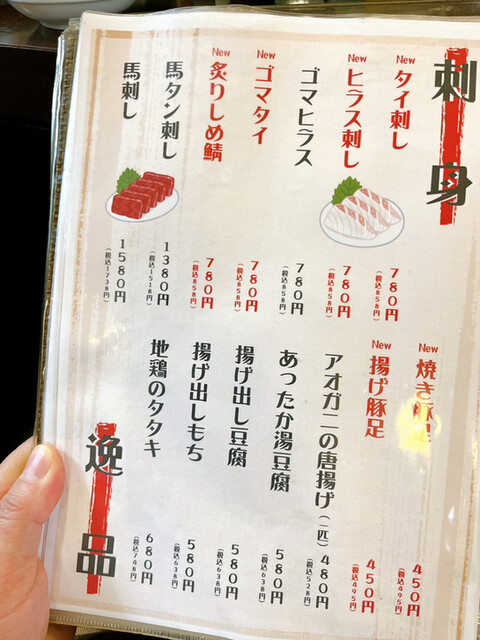 刺身
New
タイ刺し
780円
(税込858円)
New
ヒラス刺し
780円
(税込858円)
ゴマヒラス
780円
(税込858円)
New
ゴマタイ
780円
(税込858円)
New
炙りしめ鯖
780円
(税込858円)
馬タン刺し
1380円
(税込1518円)
馬刺し
1580円
(税込1738円)
New
焼き豚足
450円
(税込495円)
New
揚げ豚足
450円
(税込495円)
アオガニの唐揚げ(一匹)
480円
(税込528円)
あったか湯豆腐
580円
(税込638円)
揚げ出し豆腐
580円
(税込638円)
揚げ出しもち
580円
(税込638円)
地鶏のタタキ
680円
(税込748円)
逸品